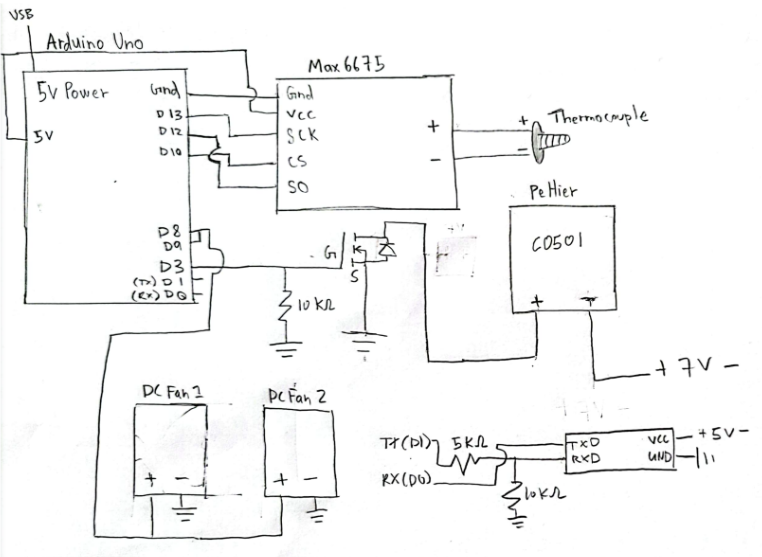 USB
Arduino Uno
5V Power
Gnd
D13
5V
D12
D10
D8
D9
D3
(TX) D1
(RX) D0
Max6675
Gnd
VCC
SCK
CS
SO
+
-
+
-
Thermocouple
G
S
10KΩ
Peltier
C0501
+
+ 7V -
DC Fan 1
+ -
DC Fan 2
+ -
TX(D1)
5KΩ
RX(D0)
10KΩ
TXD
RXD
VCC
GND
+5V-